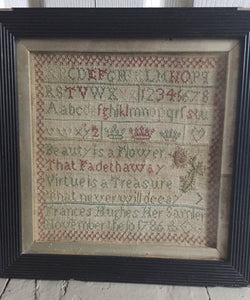 ABCDEFGH LMNOPS
RSTVWX 12345678
Aabcdefghklmnopqrfstu
Beauty is a Flower
That Fadethaway
Virtue is a Treasure
That never will decay
Frances Hughes Her Samler
November the 10 1786